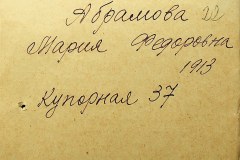 Абрамова 22
Мария Федоровна
1913
Купорная 37